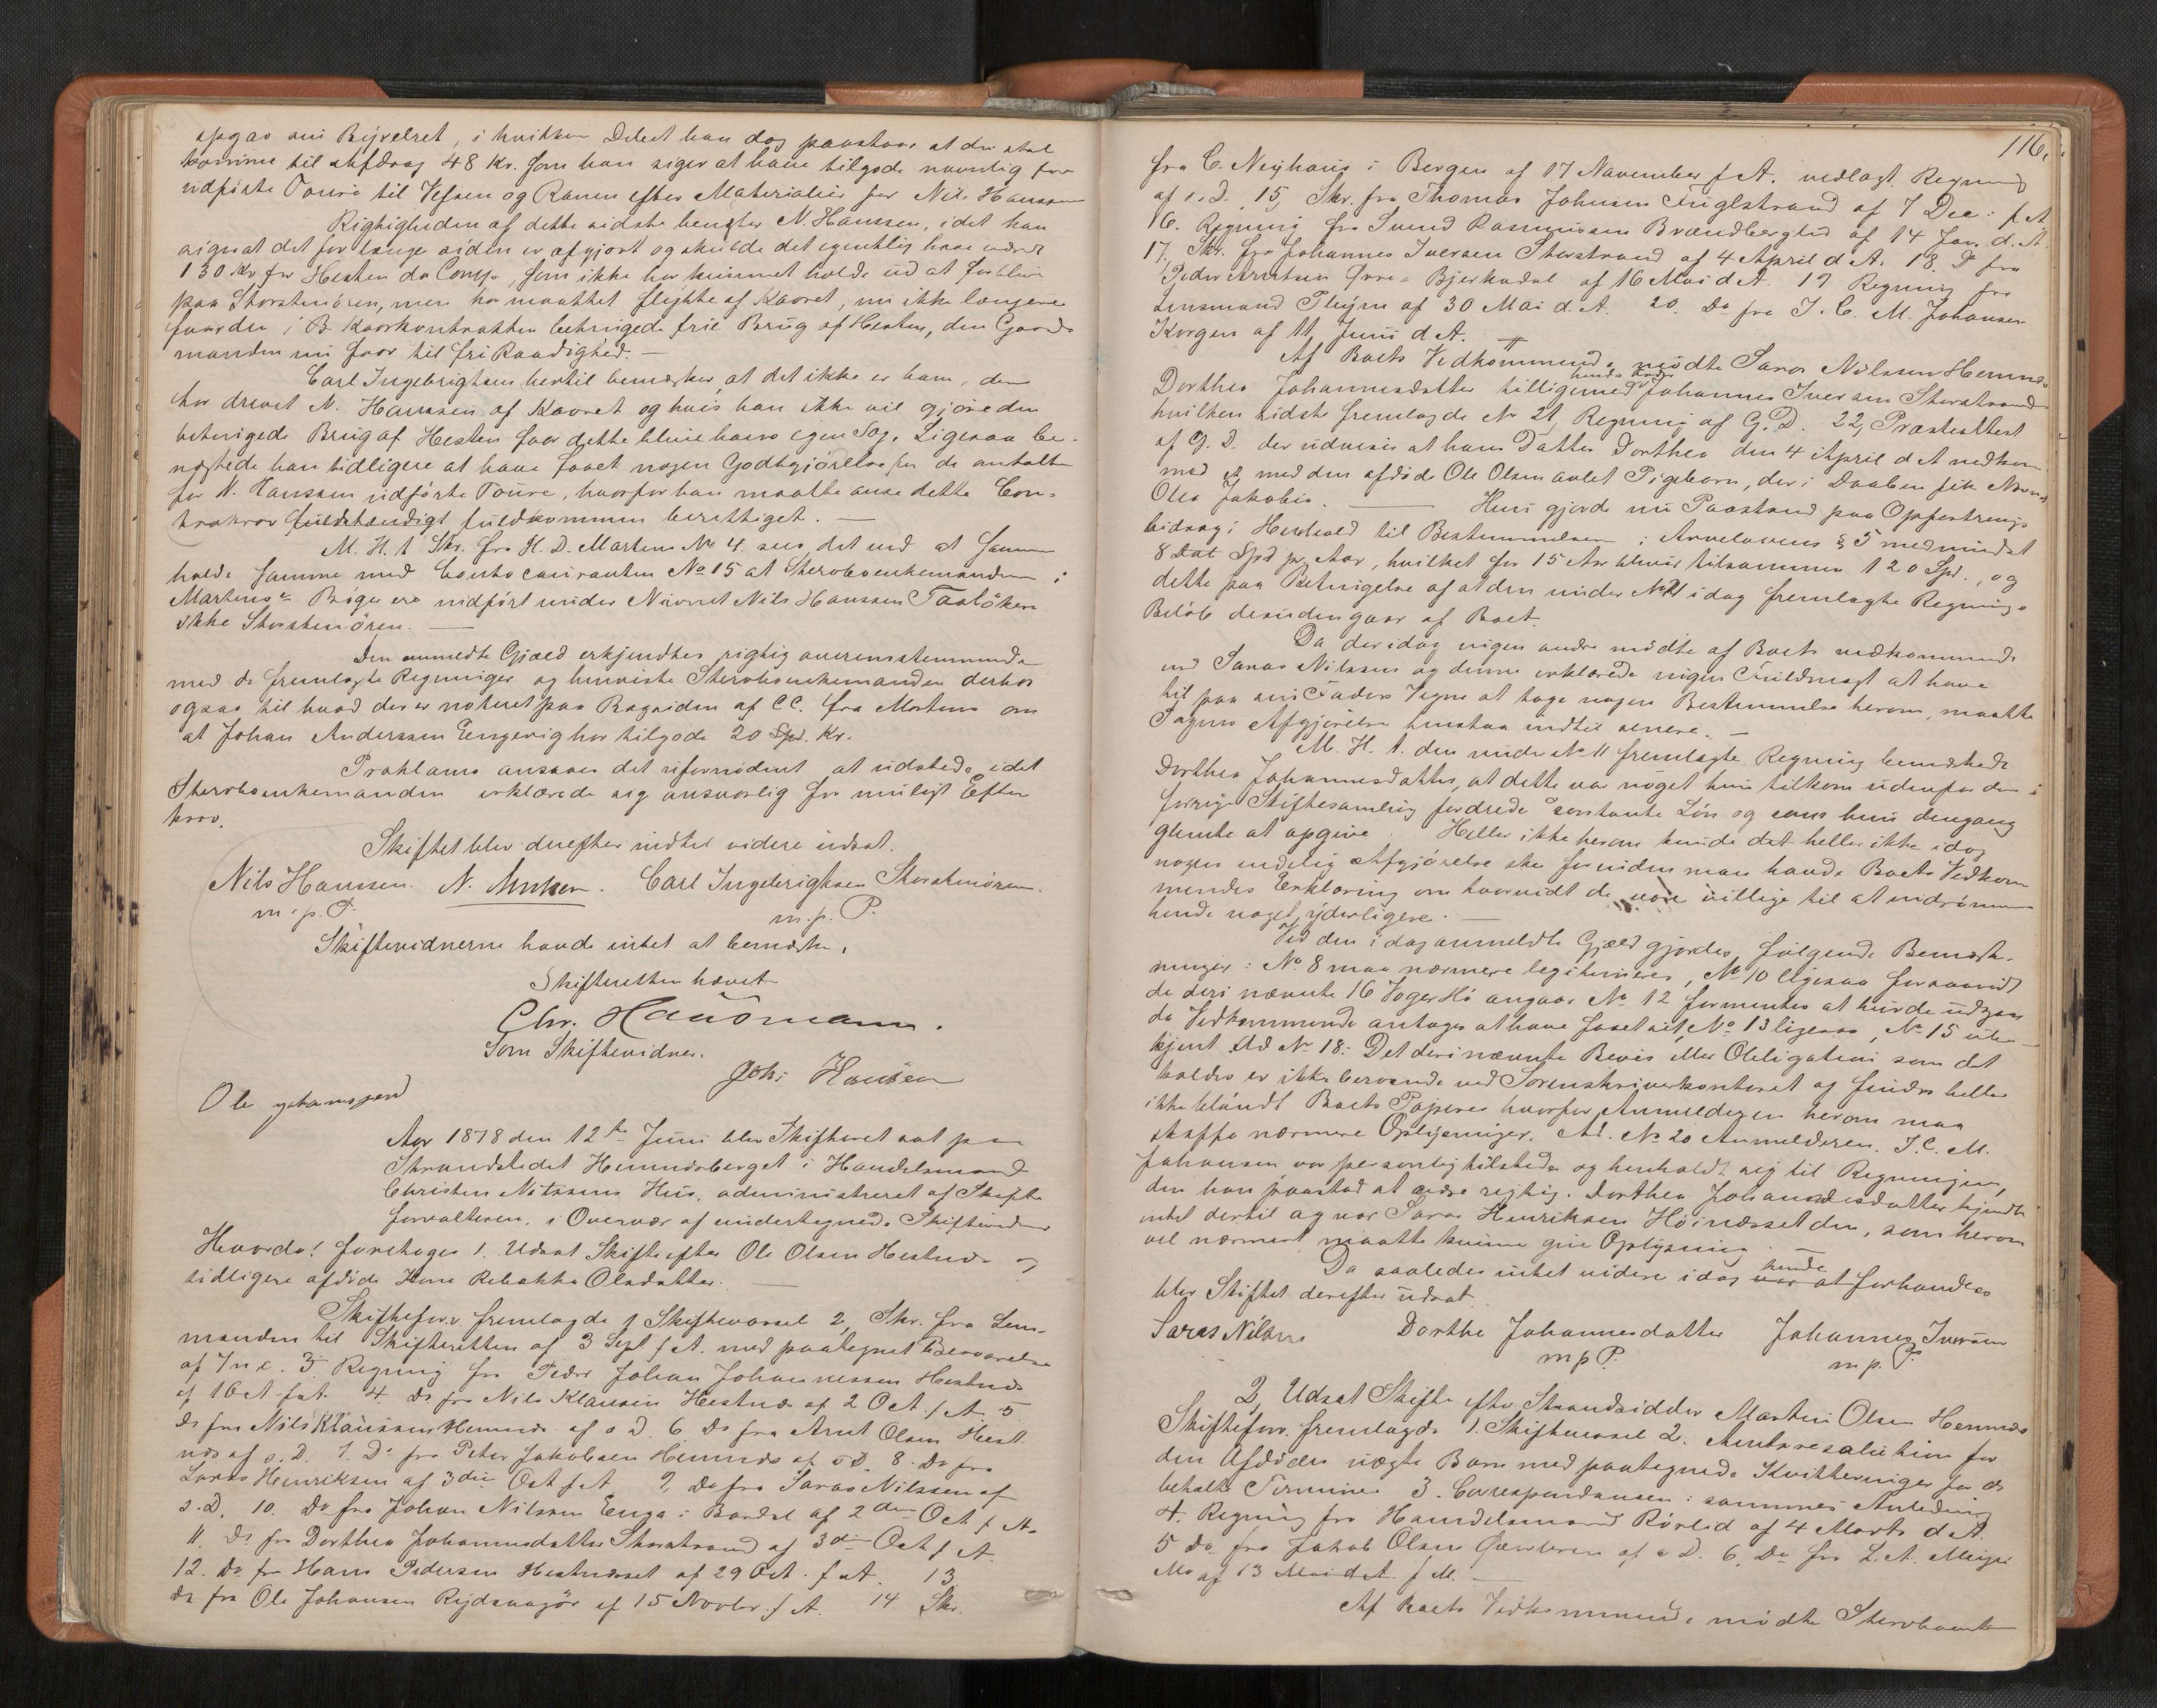 opgav om Bÿvelset, i hvilken Debet han dog paastaar at der skal
komme til Afdrag 48 Kr. som han siger at have tilgode navnlig for
udførte Toure til Vefsen og Ranen efter Materialier for Nils Hanssen
Rigtigheden af dette sidste benegter N. Hanssen, idet han
siger at det for længe siden er afgjort og skulde det egentlig have været
130 Kr for Hesten da Comp., som ikke har kunnet holde ud at forblive
paa Storstenören, men har maattet flygte af Kaaret, nu ikke længere
faar den i B. Kaarkontrakten betingede frie Brug af Hesten, den Gaard-
manden nu faar til fri Raadighed. —
Carl Ingebrigtsen hertil bemærker, at det ikke er ham, der
har drevet N. Hanssen af Kaaret og hvis han ikke vil gjøre den
betingede Brug af Hesten faar dette blive hans egen Sag. Ligesaa be-
nægtede han tidligere at have faaet nogen Godtgjörelse for de omtalte
for N. Hanssen udførte Toure, hvorfor han maatte anse dette Con-
trakrav fuldstændigt fuldkommen berettiget. —
M. H. t. Skr. fra H. D. Martens No 4. sees det ved at sammen
holde samme med Contocouranten No 15 at Stervboenkemanden i
Martens's Bøger er indfört under Navnet Nils Hanssen
ikke Storstenören. —
Den anmeldte Gjæld erkjendtes rigtig overensstemmende
med de fremlagte Regninger og henviste Stervboenkemanden derhos
ogsaa til hvad der er noteret paa Bagsiden af CC. fra Martens om
at Johan Anderssen Engevig har tilgode 20 Spd. Kr.
Proklama ansaaes det ufornödent at udstede idet
Stervboenkemanden erklærede sig ansvarlig for muligt Efter
krav.
Skiftet blev derefter indtil videre udsat.
Nils Hanssen. N. Carl Ingebrigtsen Storstenören.
m. p. P. m. p. P.
Skiftevidnerne havde intet at bemærke.
Skifteretten hævet
Chr. Hausmann.
Som Skiftevidner.
Joh: Hansen
Ole
Aar 1878 den 12te Juni blev Skifteret sat paa
Strandstedet Hemnesberget i Handelsmand
Christen Nilssens Hus, administreret af Skifte
forvalteren, i Overvær af undertegnede Skiftevidner
Hvorda! foretoges 1. Udsat Skifte efter Ole Olsen Hestnes og
tidligere afdöde Kone Rebekka Olsdatter. —
Skifteforv. fremlagde 1 Skiftevarsel 2, Skr. fra Lens-
manden til Skifteretten af 3 Sept f. A. med paategnet Besvarelse
af 3. Regning fra Peder Johan Johannessen Hestnes
af 1 Oct f. A. 4. Do fra Nils Klausen Hestnes af 2 Oct. f. A. 5.
Do fra Nils Klaussen Hemnes af s. D. 6. Do fra Arnt Olsen Hest-
nes af s. D. 7. Do fra Peter Jakobsen Hemnes af s. D. 8. Do fra
Lares Henriksen af 3die Oct f. A. 9, Do fra Saras Nilssen af
s. D. 10. Do fra Johan Nilssen Enga i Bardal af 2den Oct. f. A.
11. Do fra Dorthea Johannesdatter Storstrand af 3die Oct f. A.
12. Do fra Hans Pedersen Hestnesset af 29 Oct. f. A. 13
Do fra Ole Johansen af 15 Novbr. f. A. 14 Skr.
116.
fra C. Neyhaus i Bergen af 17 November f. A. vedlagt Regning
af s. D. 15, Skr. fra Thomas Johnsen Fuglstrand af 7 Dec: f. A
16. Regning fra Svend Rasmussen Brændberglid af 14 Jan. d. A.
17. Skr. fra Johannes Iversen Storstrand af 4 April d. A. 18. Do fra
Peder Arntsen Øvre-Bjerkadal af 16 Mai d. A. 19 Regning fra
Lensmand Pleym af 30 Mai d. A. 20. Do fra J. C. M. Johansen
Korgen af 11 Juni d. A. —
Af Boets Vedkommende mödte Saras Nilssen Hemnes
Dorthea Johannesdatter tilligemed hendes Fader Johannes Iversen Storstrand
hvilken sidste fremlagde No 21, Regning af G. D. 22, Præsteattest
af G. D. der udviser at hans Datter Dorthea den 4 April d. A nedkom
med et med den afdöde Ole Olsen avlet Pigebarn, der i Daaben fik Navnet
Olea Jakobia. — Hun gjorde nu Paastand paa Opfostrings
bidrag i Henhold til Bestemmelsen i Arvelovens § 5 med mindst
8 Spd pr Aar, hvilket for 15 Aar bliver tilsammen 120 Spd., og
dette paa Betingelse af at den under No 21 idag fremlagte Regnings
Belöb desuden gaar af Boet.
Da der idag ingen andre mödte af Boets vedkommende
end Saras Nilssen og denne erklærede ingen Fuldmagt at have
til paa sin Faders Vegne at tage nogen Bestemmelse herom, maatte
Sagens Afgjörelse henstaa indtil senere. —
M. H. t. den under No 11 fremlagte Regning bemærkede
Dorthea Johannesdatter, at dette var noget hun tilkom udenfor den i
forrige Skiftesamling fordrede kontante Lön og som hun dengang
glemte at opgive. Heller ikke herom kunde det heller ikke idag
nogen endelig Afgjörelse ske forinden man havde Boets Vedkom
mendes Erklæring om hvorvidt de vare villige til at indrömme
hende noget yderligere. —
Ved den idag anmeldte Gjæld gjordes følgende Bemærk-
ninger: No 8 maa nærmere legitimeres, No 10 ligesaa forsaavidt
de deri nævnte 16 Voger Hö angaar No 12 formentes at burde udgaa
da Vedkommende antages at have faaet sit, No 13 ligesaa, No 15 ube-
kjent. Ad No 18: Det deri nævnte Bevis eller Obligation som det
kaldes er ikke beroende ved Sorenskriverkontoret og findes heller
ikke blandt Boets Papirer hvorfor Anmelderen herom maa
skaffe nærmere Oplysninger. Ad. No 20 Anmelderen J. C. M.
Johansen var personlig tilstede og henholdt sig til Regningen,
den han paastod at være rigtig. Dorthea Johannesdatter kjendte
intet dertil og var Saras Henriksen Höinesset den, som herom
vel nærmest maatte kunne give Oplysning. —
Da saaledes intet videre idag kunde at forhandles
blev Skiftet derefter udsat
Saras Nilsen Dorthe Johannesdatter Johannes Iversen
m p P. m. p. P.
2, Udsat Skifte efter Strandsidder Martin Olsen Hemnes
Skifteforv. fremlagde 1. Skiftevarsel 2. Amtsresolution for
den Afdödes uægte Barn med paategnede Kvitteringer for de
betalte Terminer 3. Correspondancen i sammes Anledning
4. Regning fra Handelsmand Rörlid af 4 Marts d. A.
5 Do fra Jakob Olsen af s. D. 6. Do fra L. A. Meyer
Mo af 13 Mai d. A. f. M. —
Af Boets Vedkommende mödte Stervboenken